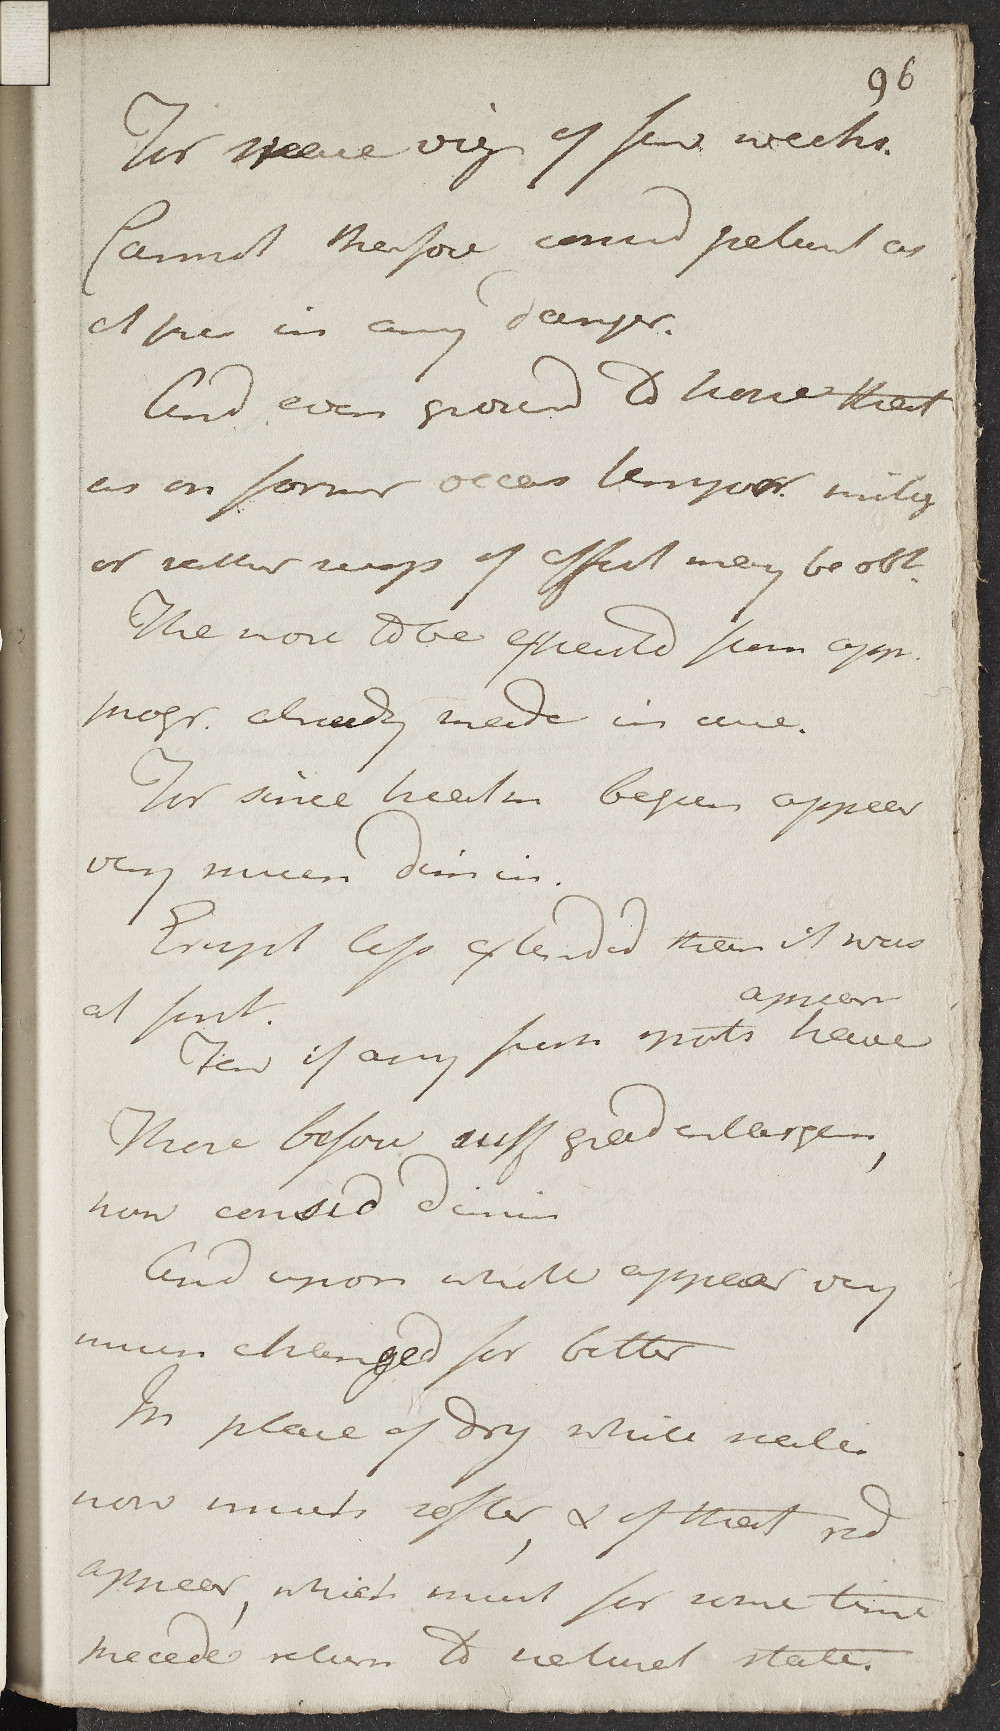 96
For scarce vig of few weeks.
Cannot therefore consid patient as
at pres in any danger.
And even ground to hope that
as on former occas tempor. mitig
or rather susp of effect may be obt.
The more to be expected from app.
progr. already made in cure.
For since treatm begun appear
very much dimin.
Erupt less extended than it was
at first.
appear
Few if any fresh spots have
Those before suff grad enlargem,
now consid dimin
And upon whole appear very
much changed for better
In place of dry white scales
now much softer, & of that red
appear, which must for some time
precede return to natural state.